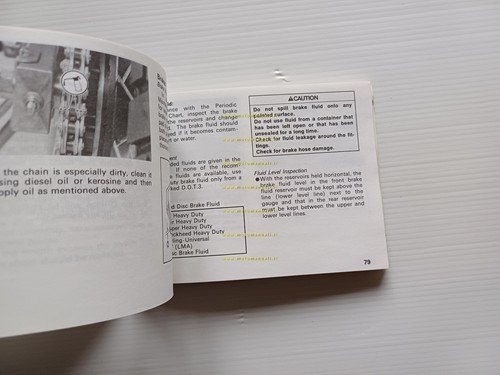 the chain is especially dirty, clean it
sing diesel oil or kerosine and then
pply oil as mentioned above.
Brake
id:
ance with the Periodic
Chart, inspect the brake
the reservoirs and change
The brake fluid should
ged if it becomes contam-
t or water.
ent
ded fluids are given in the
If none of the recom-
fluids are available, use
uty brake fluid only from a
ked D.O.T.3.
d Disc Brake Fluid
Heavy Duty
Heavy Duty
uper Heavy Duty
ockheed Heavy Duty
ling-Universal
(LMA)
isc Brake Fluid
⚠CAUTION
Do not spill brake fluid onto any
painted surface.
Do not use fluid from a container that
has been left open or that has been
unsealed for a long time.
Check for fluid leakage around the fit-
tings.
Check for brake hose damage.
Fluid Level Inspection
●With the reservoirs held horizontal, the
brake fluid level in the front brake
fluid reservoir must be kept above the
line (lower level line) next to the
gauge and that in the rear reservoir
must be kept between the upper and
lower level lines.
79